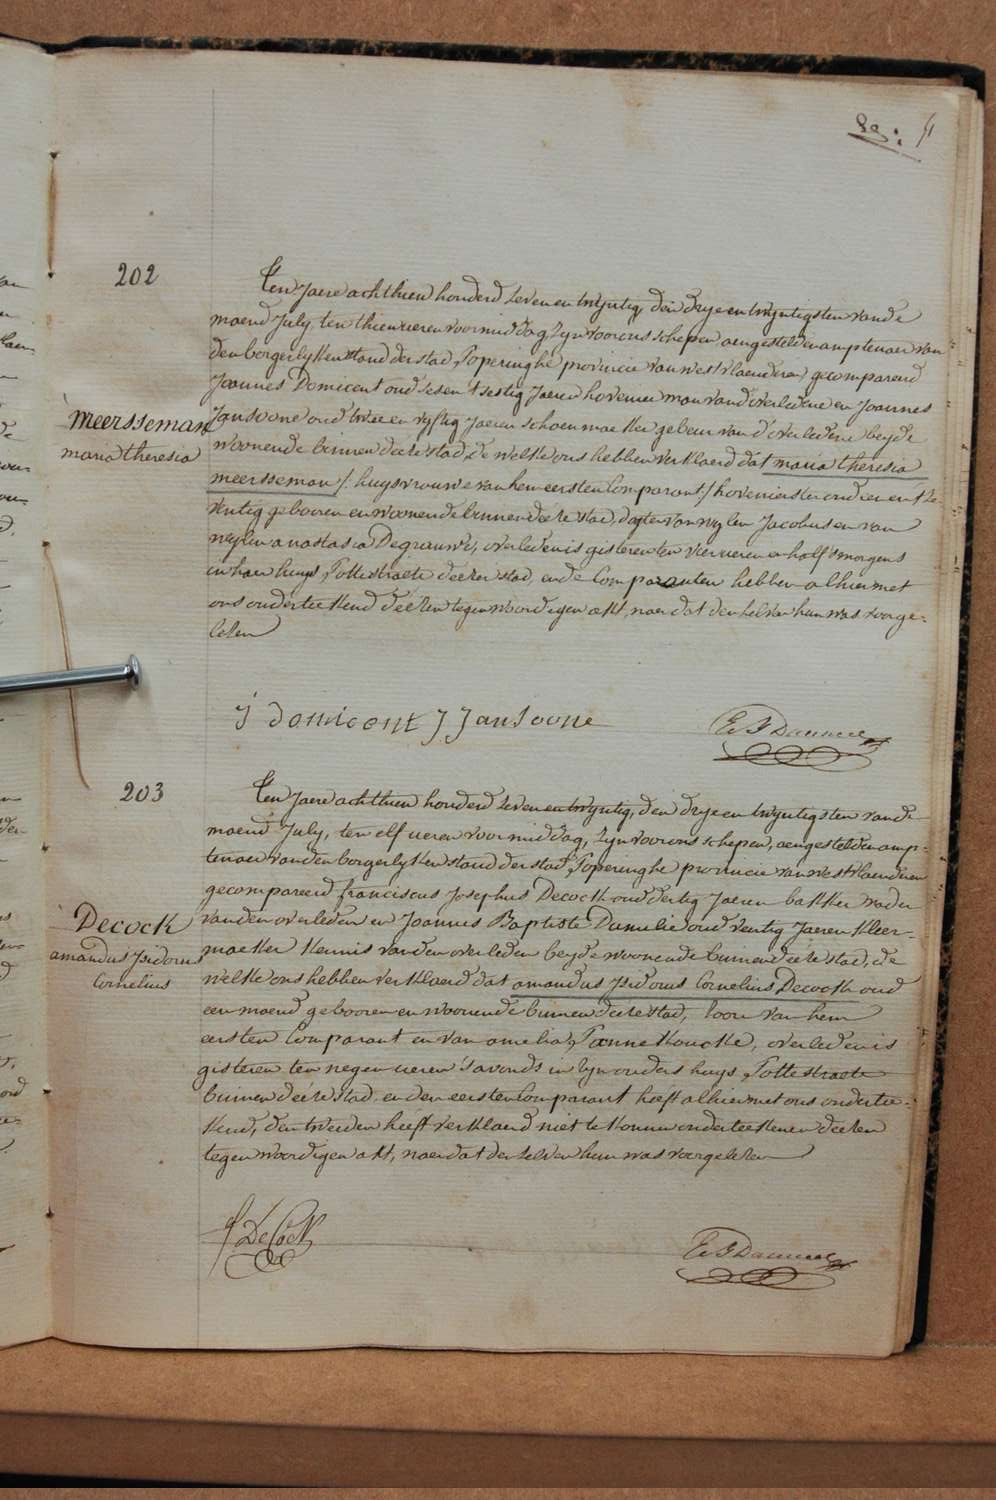 202
Ten Jaere achthien honderd seven en twijntig, den drye en twijntigsten van de
maend July, ten thien ueren voormiddag, zyn voor ons schepen aengestelden amptenaer van
den borgerlyken stand der stad Poperinghe provincie van westvlaenderen gecompareerd
Joannes Domicent oud sesen t'sestig Jaeren hovenier man van d'overledene en Joannes
Meersseman
maria theresia
Jansoone oud twee en vyftig Jaeren schoenmaeker gebeur van d'overledene beyde
woonende binnen deeze stad, de welke ons hebben verklaerd dat maria theresia
meersseman /: huysvrouwe van hem eersten Comparant / hovenierster oud
ventig gebooren en woonende binnen deeze stad, dogter van wylen Jacobus en van
wylen anastasia Degrauwe, overleden is gisteren ten vier ueren en half s'morgens
in haer huys, Pottestraete deezer stad, en de Comparanten hebben alhier met
ons onderteekend deezen tegenwoordigen akt, naer dat den zelven hun was voorge-
lesen
J domicent J Jansoone
203
Ten Jaere achthien honderd seven en twijntig, den drye en twijntigsten van de
maend July, ten elf ueren voormiddag, zyn voor ons schepen, aengestelden amp-
tenaer van den borgerlyken stand der stad Poperinghe provincie van westvlaenderen
gecompareerd franciscus Josephus Decock oud dertig Jaeren bakker vader
Decock
amandus Isidorus
Cornelius
van den overleden en Joannes Baptiste Dumelie oud ventig Jaeren kleer-
maeker kennis van den overleden beyde woonende binnen deeze stad, de
welke ons hebben verklaerd dat amandus Isidorus Cornelius Decock oud
een maend gebooren en woonende binnen deeze stad, zoon van hem
eersten Comparant en van amelia Pannekoucke, overleden is
gisteren ten negen ueren s'avonds in zyn ouders huys, Pottestraete
binnen deeze stad en den eersten Comparant heeft alhier met ons ondertee-
kend, den tweeden heeft verklaerd niet te konnen onderteekenen deezen
tegenwoordigen akt, naer dat den zelven hun was voorgelezen
f DeCock